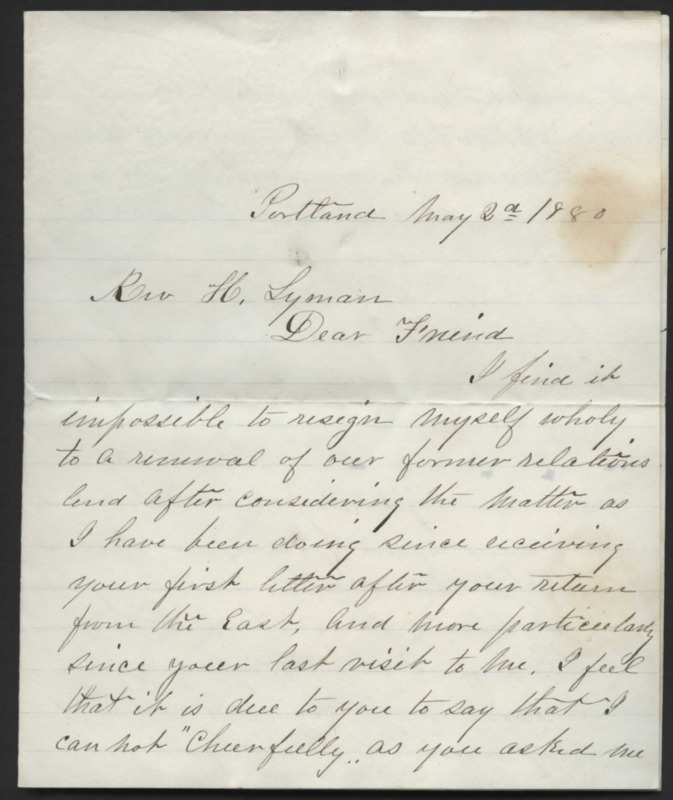 Portland May 2d 1880
Rev H. Lyman
Dear Friend
I find it
impossible to resign myself wholy
to a renewal of our former relations
and after considering the matter as
I have been doing since receiving
your first letter after your return
from the East, and more particularly
since your last visit to me. I feel
that it is due to you to say that I
can not "Cheerfully" as you asked me